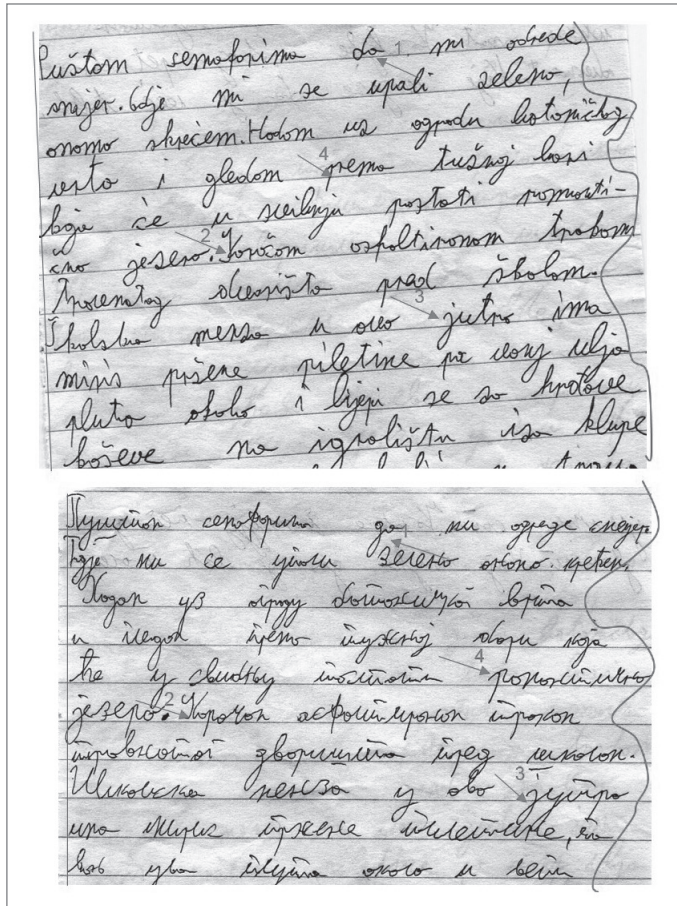 Puštam semaforima da 1 mi odrede
smjer. Gdje mi se upali zeleno,
onamo skrećem. Hodam uz ogradu botaničkog
4
vrta i gledam prema tužnoj bari
koja će u svibnju postati romanti-
2
čno jezero. Koračam asfaltiranom trakom
travnatog dvorišta pred školom.
3
Školska menza u ovo jutro ima
miris pržene piletine pa vonj ulja
pluta okolo i lijepi se za hrđave
koševe na igralištu iza klupe
Пуштам семафорима да 1 ми одреде смјер.
Гдје ми се упали зелено онамо
Ходам уз ограду ботаничког врта
и гледам према тужној бари која
4
ће у свибњу постати романтично
2
језеро. Корачам асфалтираном траком
травнатог дворишта пред школом.
3
Школска менза у ово јутро
има мирис пржене пилетине, па
воњ уља плута около и